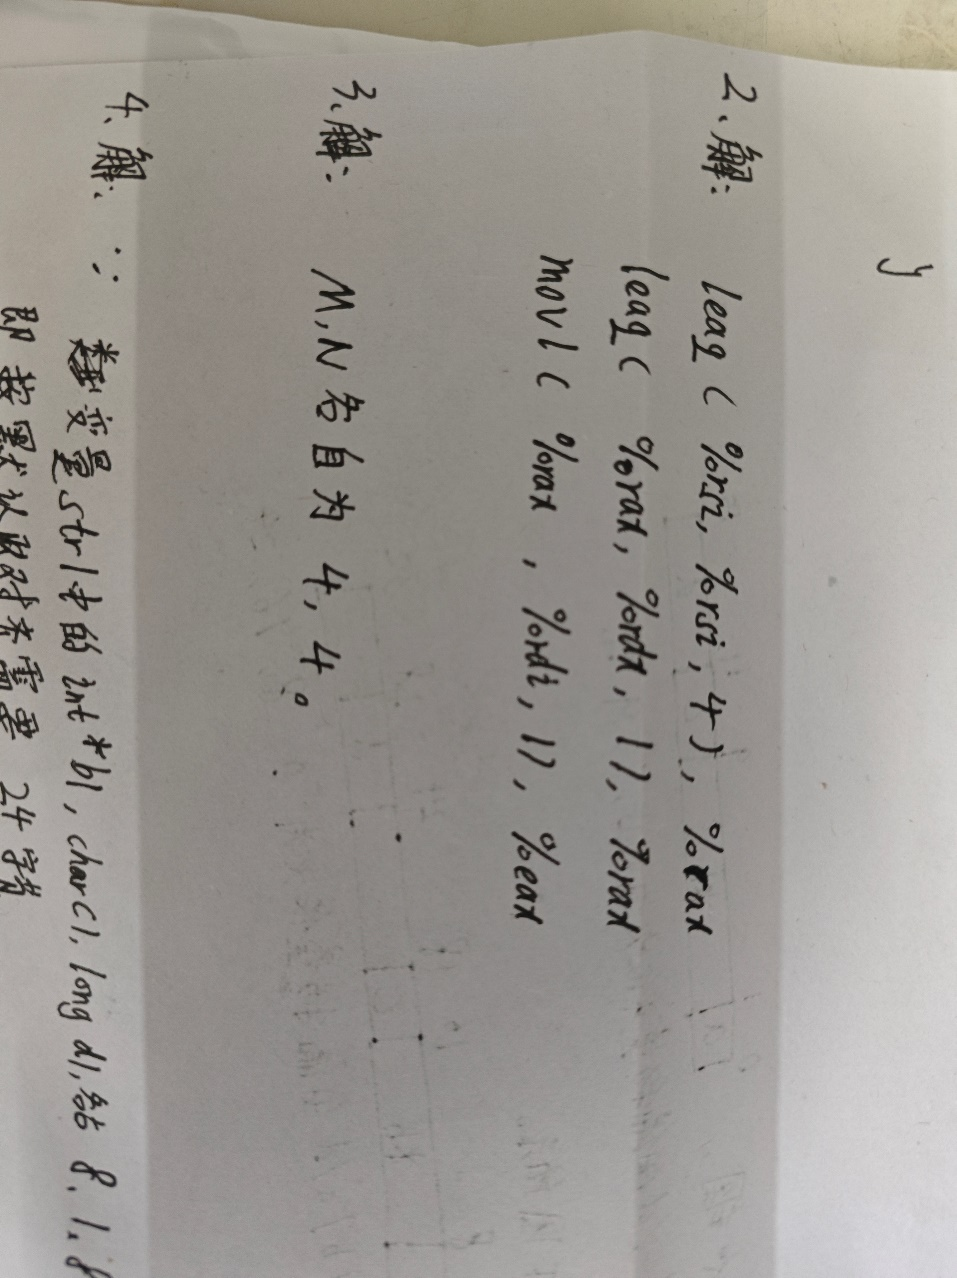 }
2、解: leaq ( %rsi, %rsi, 4), %rax
leaq ( %rax, %rdx, 1), %rax
movl ( %rax , %rdi, 1), %eax
3、解: M,N各自为 4, 4。
4、解: ∵ 变量str1中的int*b1, charc1, long d1,各占 8、1、8
即 按默认取对齐需要 24 字节